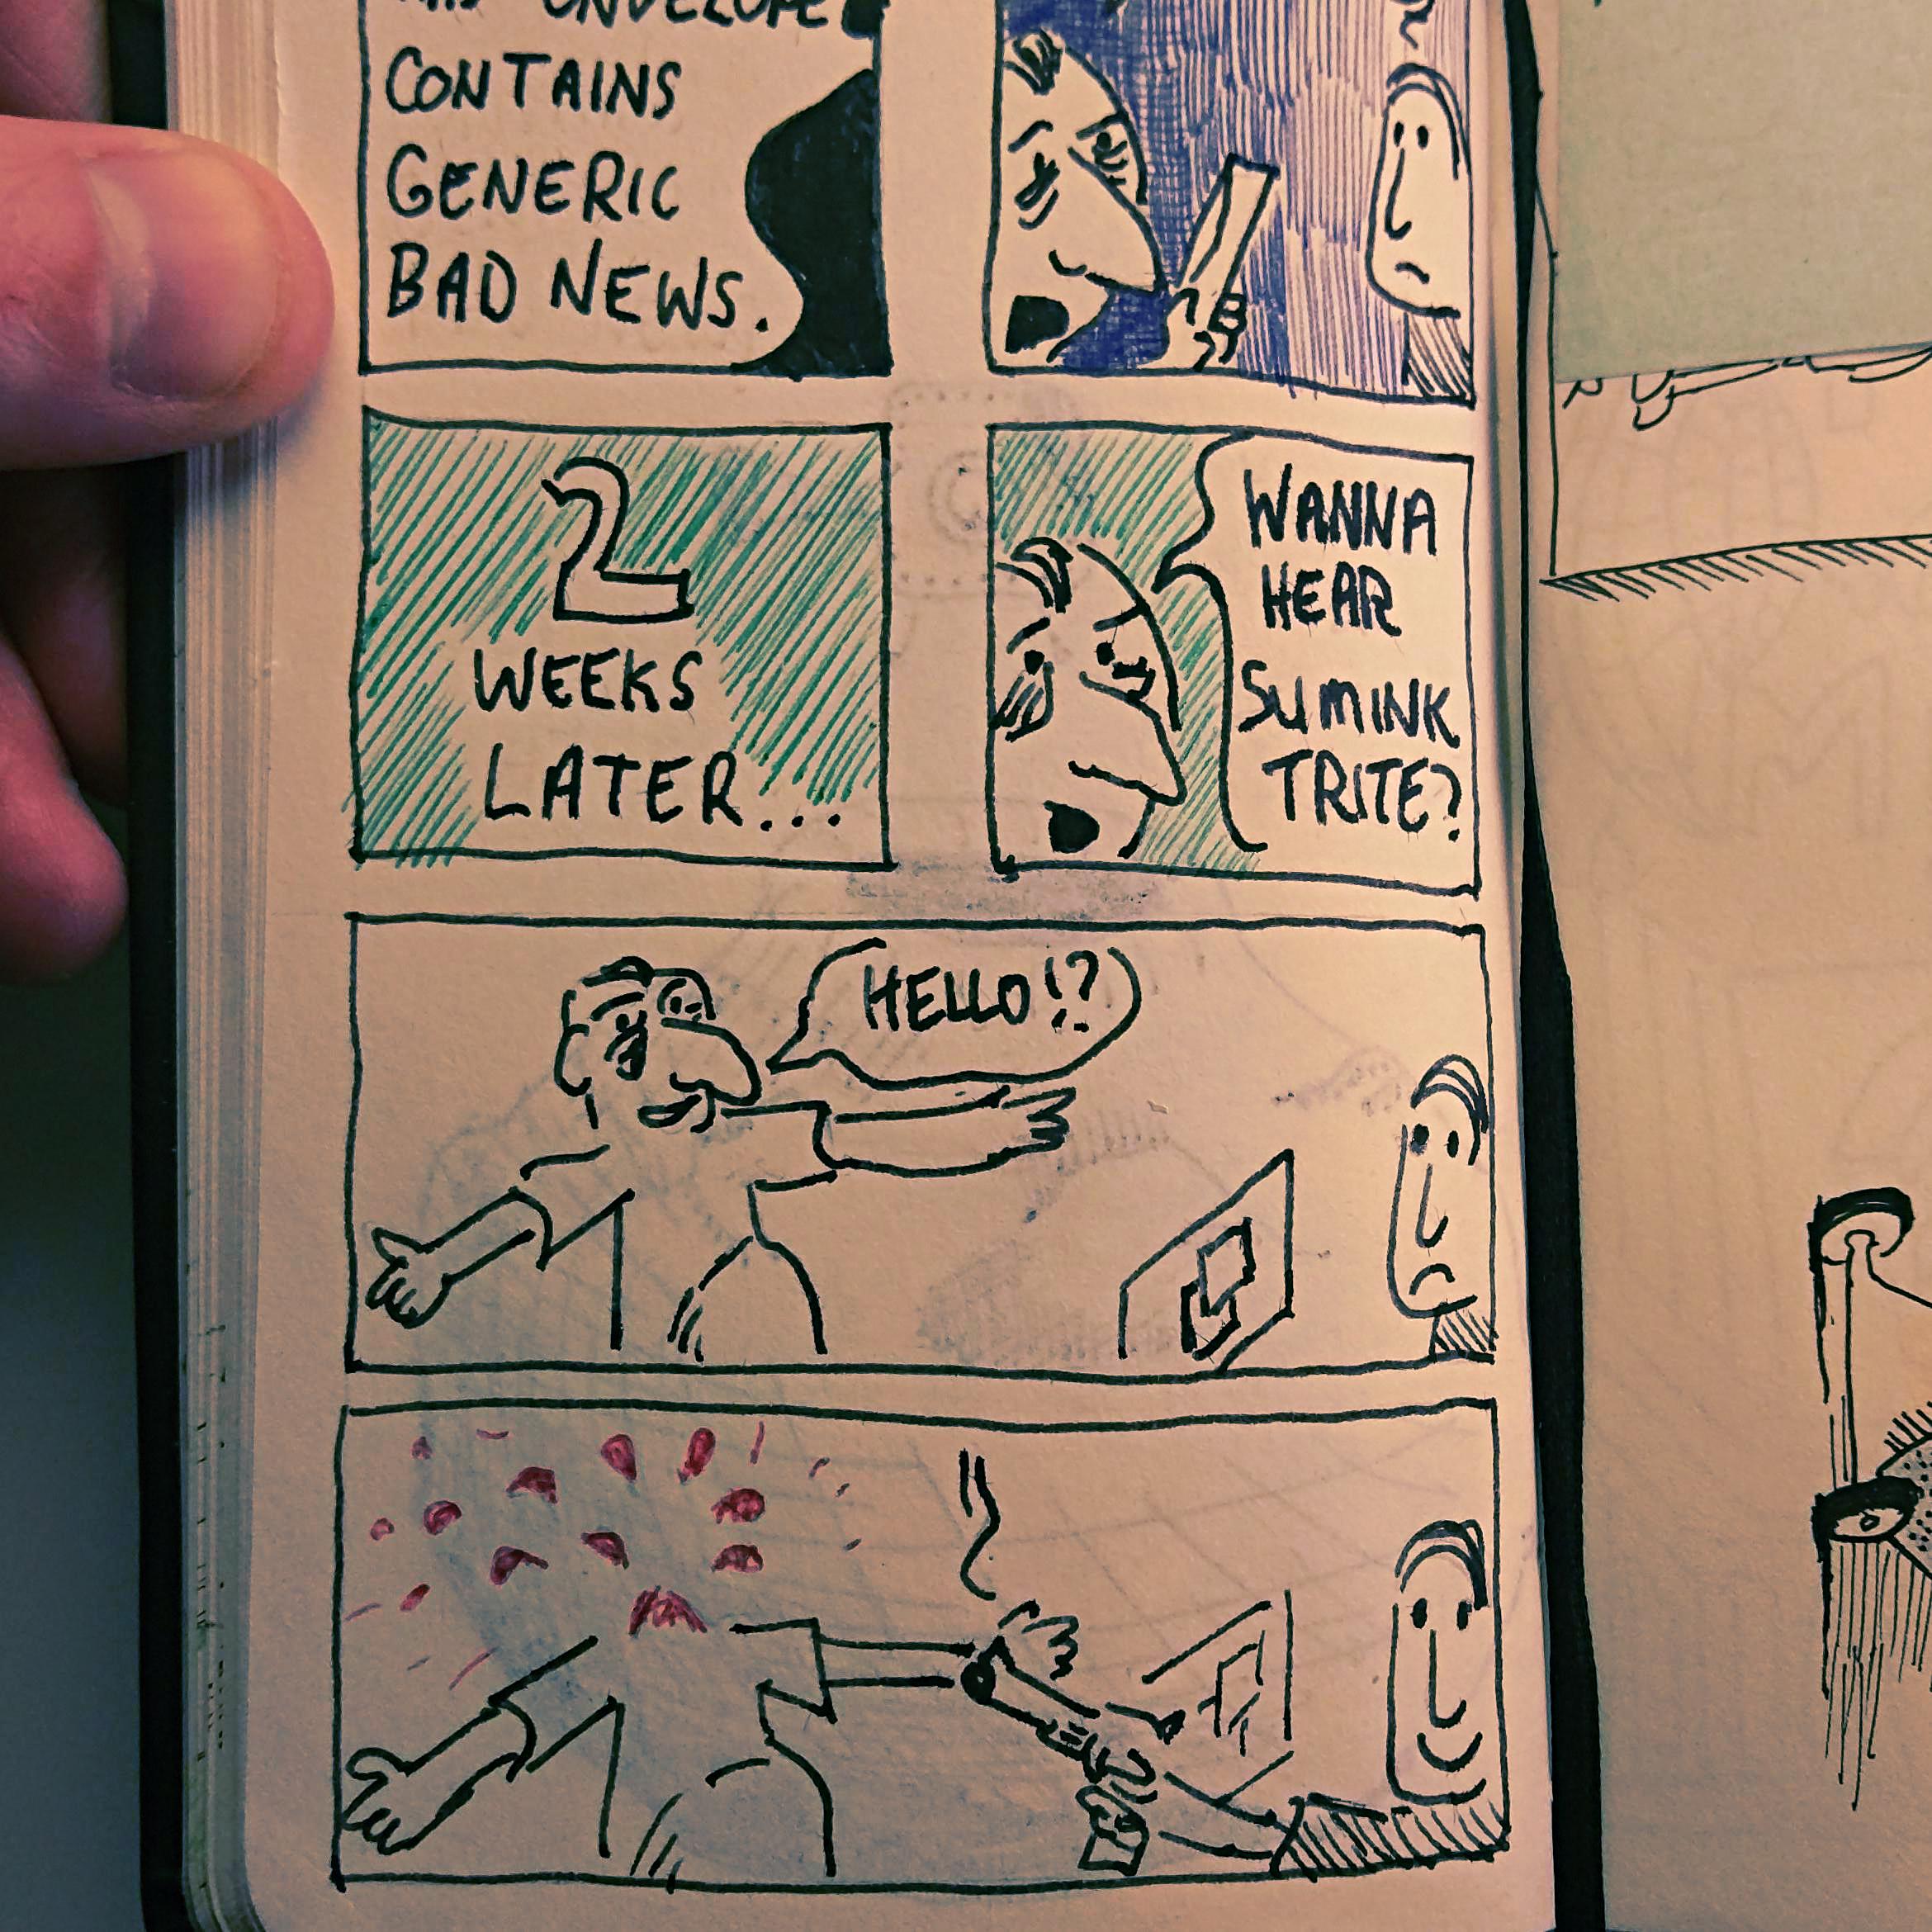 ENVELOPE
CONTAINS
GENERIC
BAD NEWS.
2
WEEKS
LATER...
WANNA
HEAR
SUMINK
TRITE?
HELLO!?